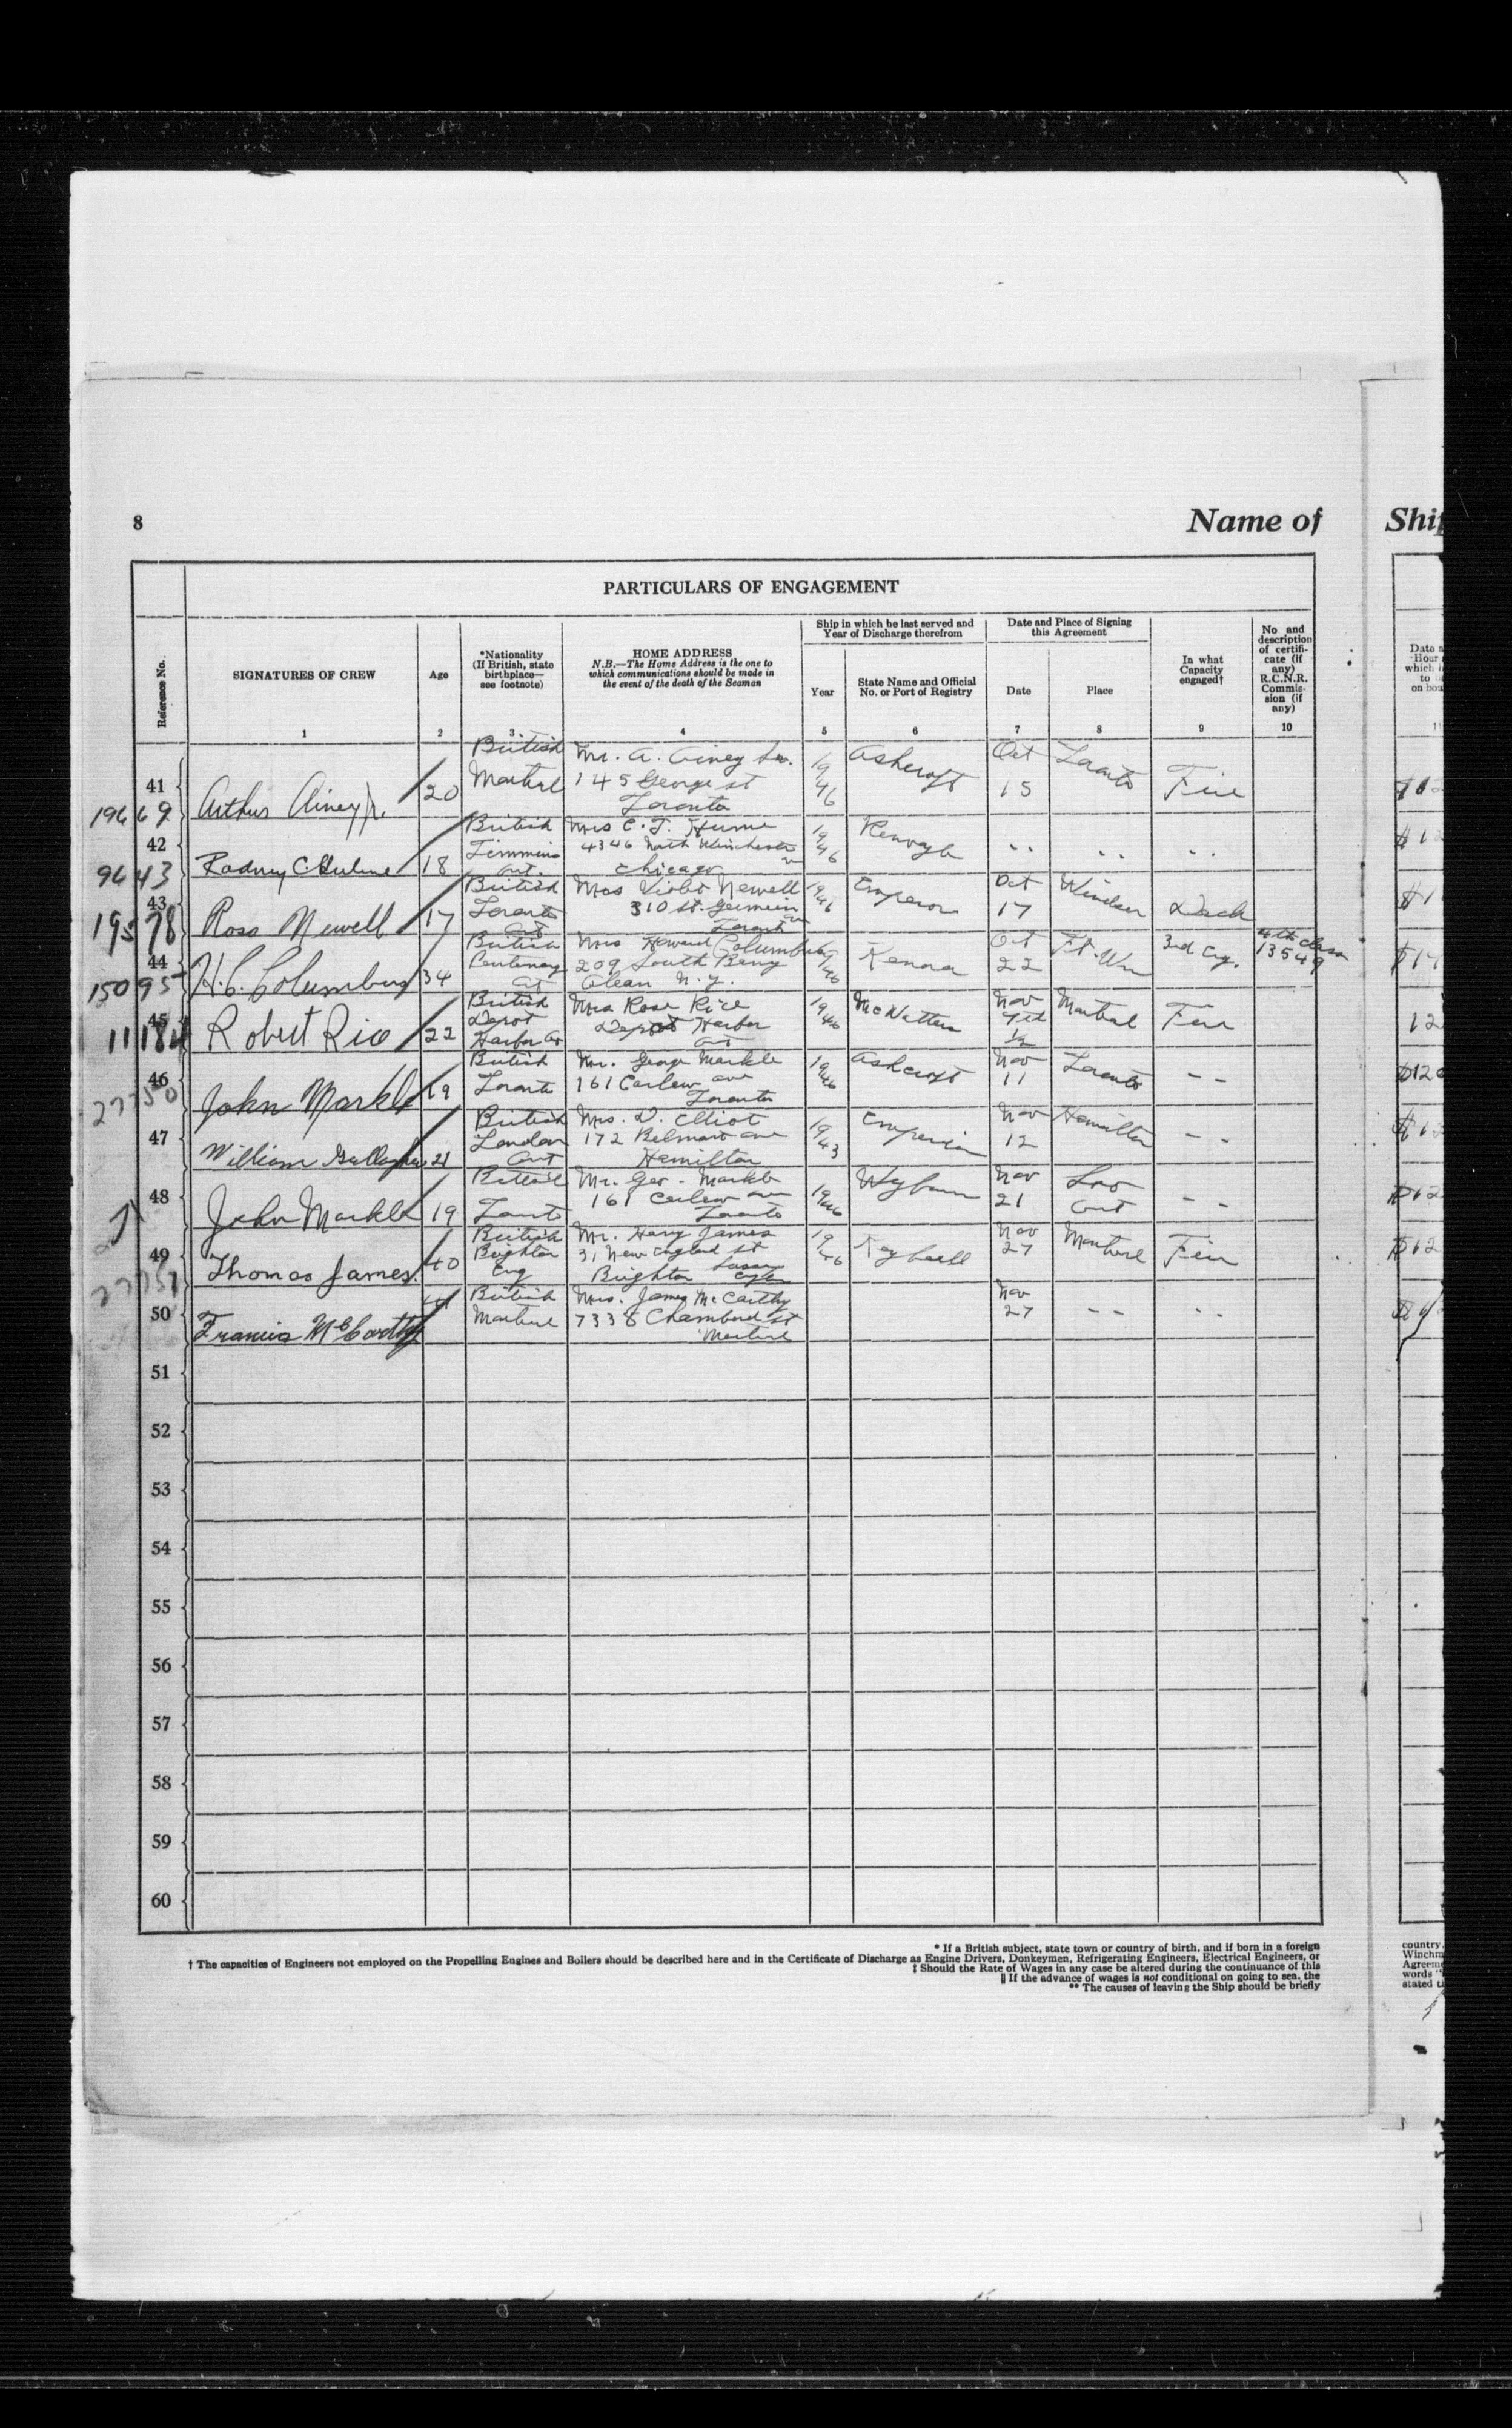 8
Name of
Shi
PARTICULARS OF ENGAGEMENT
Reference No.
SIGNATURES OF CREW
Age
*Nationality
(If British, state
birthplace—
see footnote)
HOME ADDRESS
N.B.—The Home Address is the one to
which communications should be made in
the event of the death of the Seaman
Ship in which he last served and
Year of Discharge therefrom
Year
State Name and Official
No. or Port of Registry
Date and Place of Signing
this Agreement
Date
Place
In what
Capacity
engaged†
No and
description
of certifi-
cate (if
any)
R.C.N.R.
Commis-
sion (if
any)
1 2 3 4 5 6 7 8 9 10
41
19669
Arthur Ainey Jr.
20
British
Montreal
Mr. A. Ainey Sr.
145 George st
Toronto
19
46
Ashcroft
Oct
15
Toronto
Fire
42
9643
Rodney C Hulme
18
British
Timmins
Ont.
Mrs C. J. Hume
4346 North Winchester
Chicago
19
46
Oct
43
19578
Ross Newell
17
British
Toronto
Ont
Mrs Violet Newell
310 St. Germain
Toronto
19
46
Emperor
Oct
17
Windsor
Deck
44
15095
H.C. Columbus
34
British
Mrs Howard Columbus
209 South Barry
Olean N.Y.
19
46
Kenora
Oct
22
Ft. Wm
3rd Eng.
4th class
13549
45
11184
Robert Rice
22
British
Depot
Harbor
Mrs Rose Rice
Depot Harbor
Ont
19
46
Nov
9th
Montreal
Fire
46
27750
John Markle
19
British
Toronto
Mr. George Markle
161 Carlew ave
Toronto
19
46
Ashcroft
Nov
11
Toronto
- -
47
William Gallagher
21
British
London
Ont
Mrs. D. Elliot
172 Belmont ave
Hamilton
19
43
Nov
12
Hamilton
- -
48
John Markle
19
British
Toronto
Mr. Geo. Markle
161 Carlew ave
Toronto
19
46
Weyburn
Nov
21
Ont
- -
49
27751
Thomas James.
40
British
Brighton
Eng
Mr. Harry James
31 New England st
Brighton
19
46
Nov
27
Montreal
Fire
50
Francis McCarthy
British
Montreal
Mrs. James McCarthy
7338 Chambord st
Montreal
Nov
27
- -
51
52
53
54
55
56
57
58
59
60
* If a British subject, state town or country of birth, and if born in a foreign
† The capacities of Engineers not employed on the Propelling Engines and Boilers should be described here and in the Certificate of Discharge as Engine Drivers, Donkeymen, Refrigerating Engineers, Electrical Engineers, or
‡ Should the Rate of Wages in any case be altered during the continuance of this
‖ If the advance of wages is not conditional on going to sea, the
** The causes of leaving the Ship should be briefly
country.
Winchm
Agreeme
words "
stated t